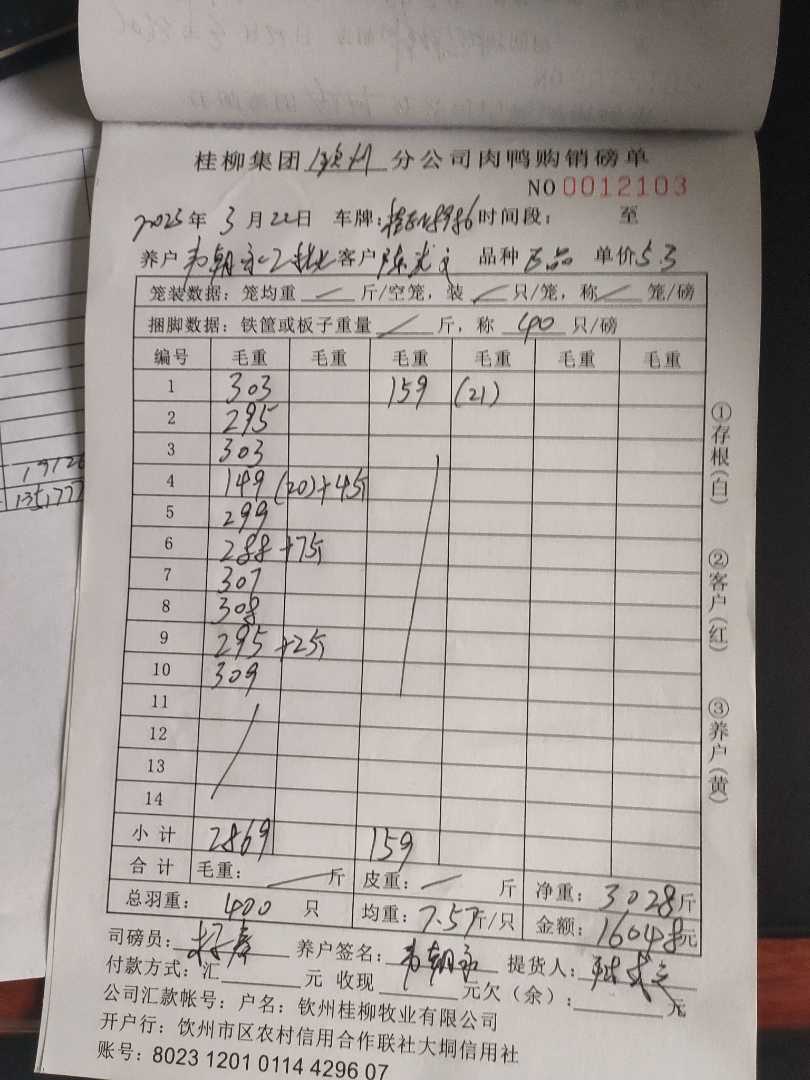 桂柳集团 钦州 分公司肉鸭购销磅单
NO 0012103
2025年 3月22日 车牌: 时间段: 至
养户 韦朝 客户 陈 品种 单价5.3
笼装数据: 笼均重 斤/空笼, 装 只/笼, 称 笼/磅
捆脚数据: 铁筐或板子重量 斤, 称 40 只/磅
编号 毛重 毛重 毛重 毛重 毛重 毛重
1 303 159 (21)
2 295
3 303
4 149 (20)+4斤
5 299
6 288 +7斤
7 307
8 308
9 295 +2斤
10 309
11
12
13
14
小计 2869 159
合计 毛重: 斤 皮重: 斤 净重: 3028斤
总羽重: 400 只 均重: 7.57斤/只 金额: 16048元
司磅员: 养户签名: 韦朝 提货人:
付款方式: 汇 元 收现 元欠(余): 元
公司汇款帐号: 户名: 钦州桂柳牧业有限公司
开户行: 钦州市区农村信用合作联社大垌信用社
账号: 8023 1201 0114 4296 07
①存根(白)
②客户(红)
③养户(黄)
1912
1351777